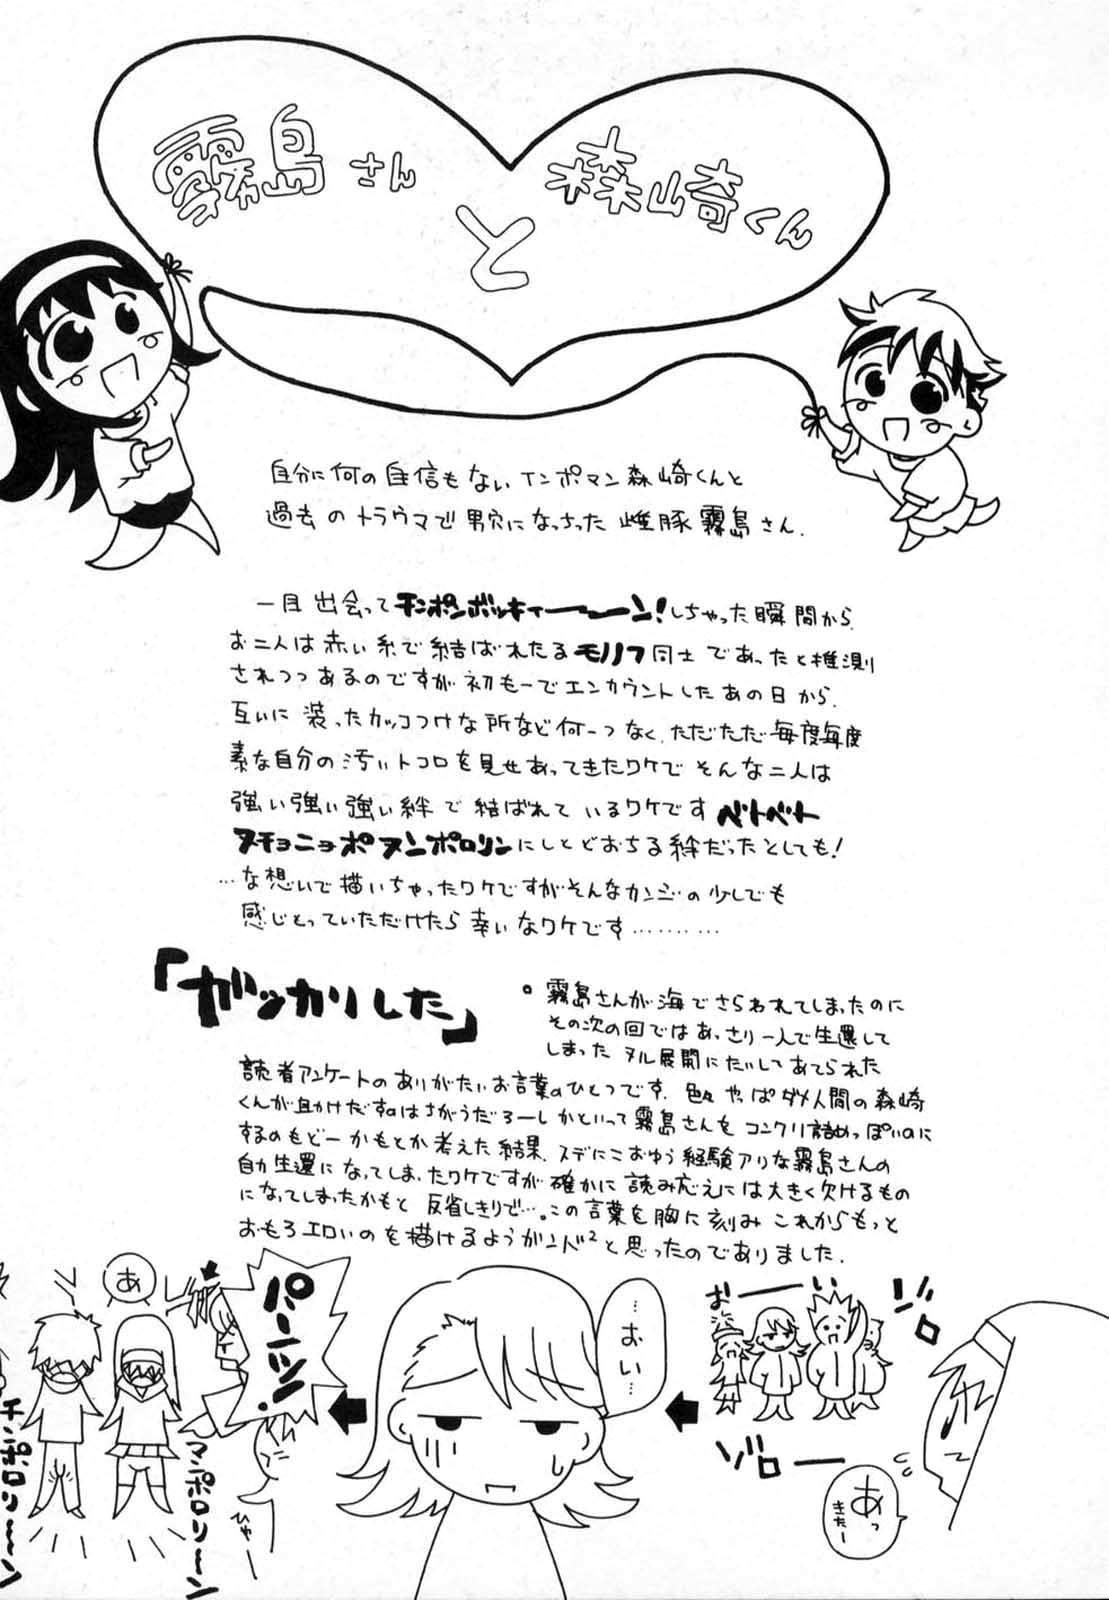 霧島さん
と
森崎くん
自分に何の自信もないインポマン森崎くんと
過去のトラウマで男穴になっちった雌豚霧島さん.
一目出会ってチンポンボッキィーーン!しちゃった瞬間から.
お二人は赤い糸で結ばれたるモノノフ同士であったと推測
されつつあるのですが初も一でエンカウントしたあの日から.
互いに装ったカッコつけな所など何一つなく、ただただ毎度毎度
素な自分の汚いトコロを見せあってきたワケでそんな二人は
強い強い強い絆で結ばれているワケですベトベト
ヌチョニョポヌンポロリンにしとどおちる絆だったとしても!
…な想いで描いちゃったワケですがそんなカンジの少しでも
感じとっていただけたら幸いなワケです………
「ガッカリした」
。霧島さんが海でさらわれてしまったのに
その次の回ではあっさり一人で生還して
しまったヌル展開にたいしてあてられた
読者アンケートのありがたいお言葉のひとつです.色々やっぱダメ人間の森崎
くんが助けだすのはちがうだろーしかといって霧島さんをコンクリ詰めっぽいのに
するのもどーかもとか考えた結果、スデにこおゆう経験アリな霧島さんの
自力生還になってしまったワケですが確かに読み応えには大きく欠けるもの
になってしまったかもと反省しきりで…。この言葉を胸に刻みこれからもっと
おもろエロいのを描けるようガンバ²と思ったのでありました.
おーーい
ゾロ
ゾローー
あっ
きたー
…おい…
パーンツ!
ひゅー
あ
マンポロリ〜ン
チンポロリ〜〜ン